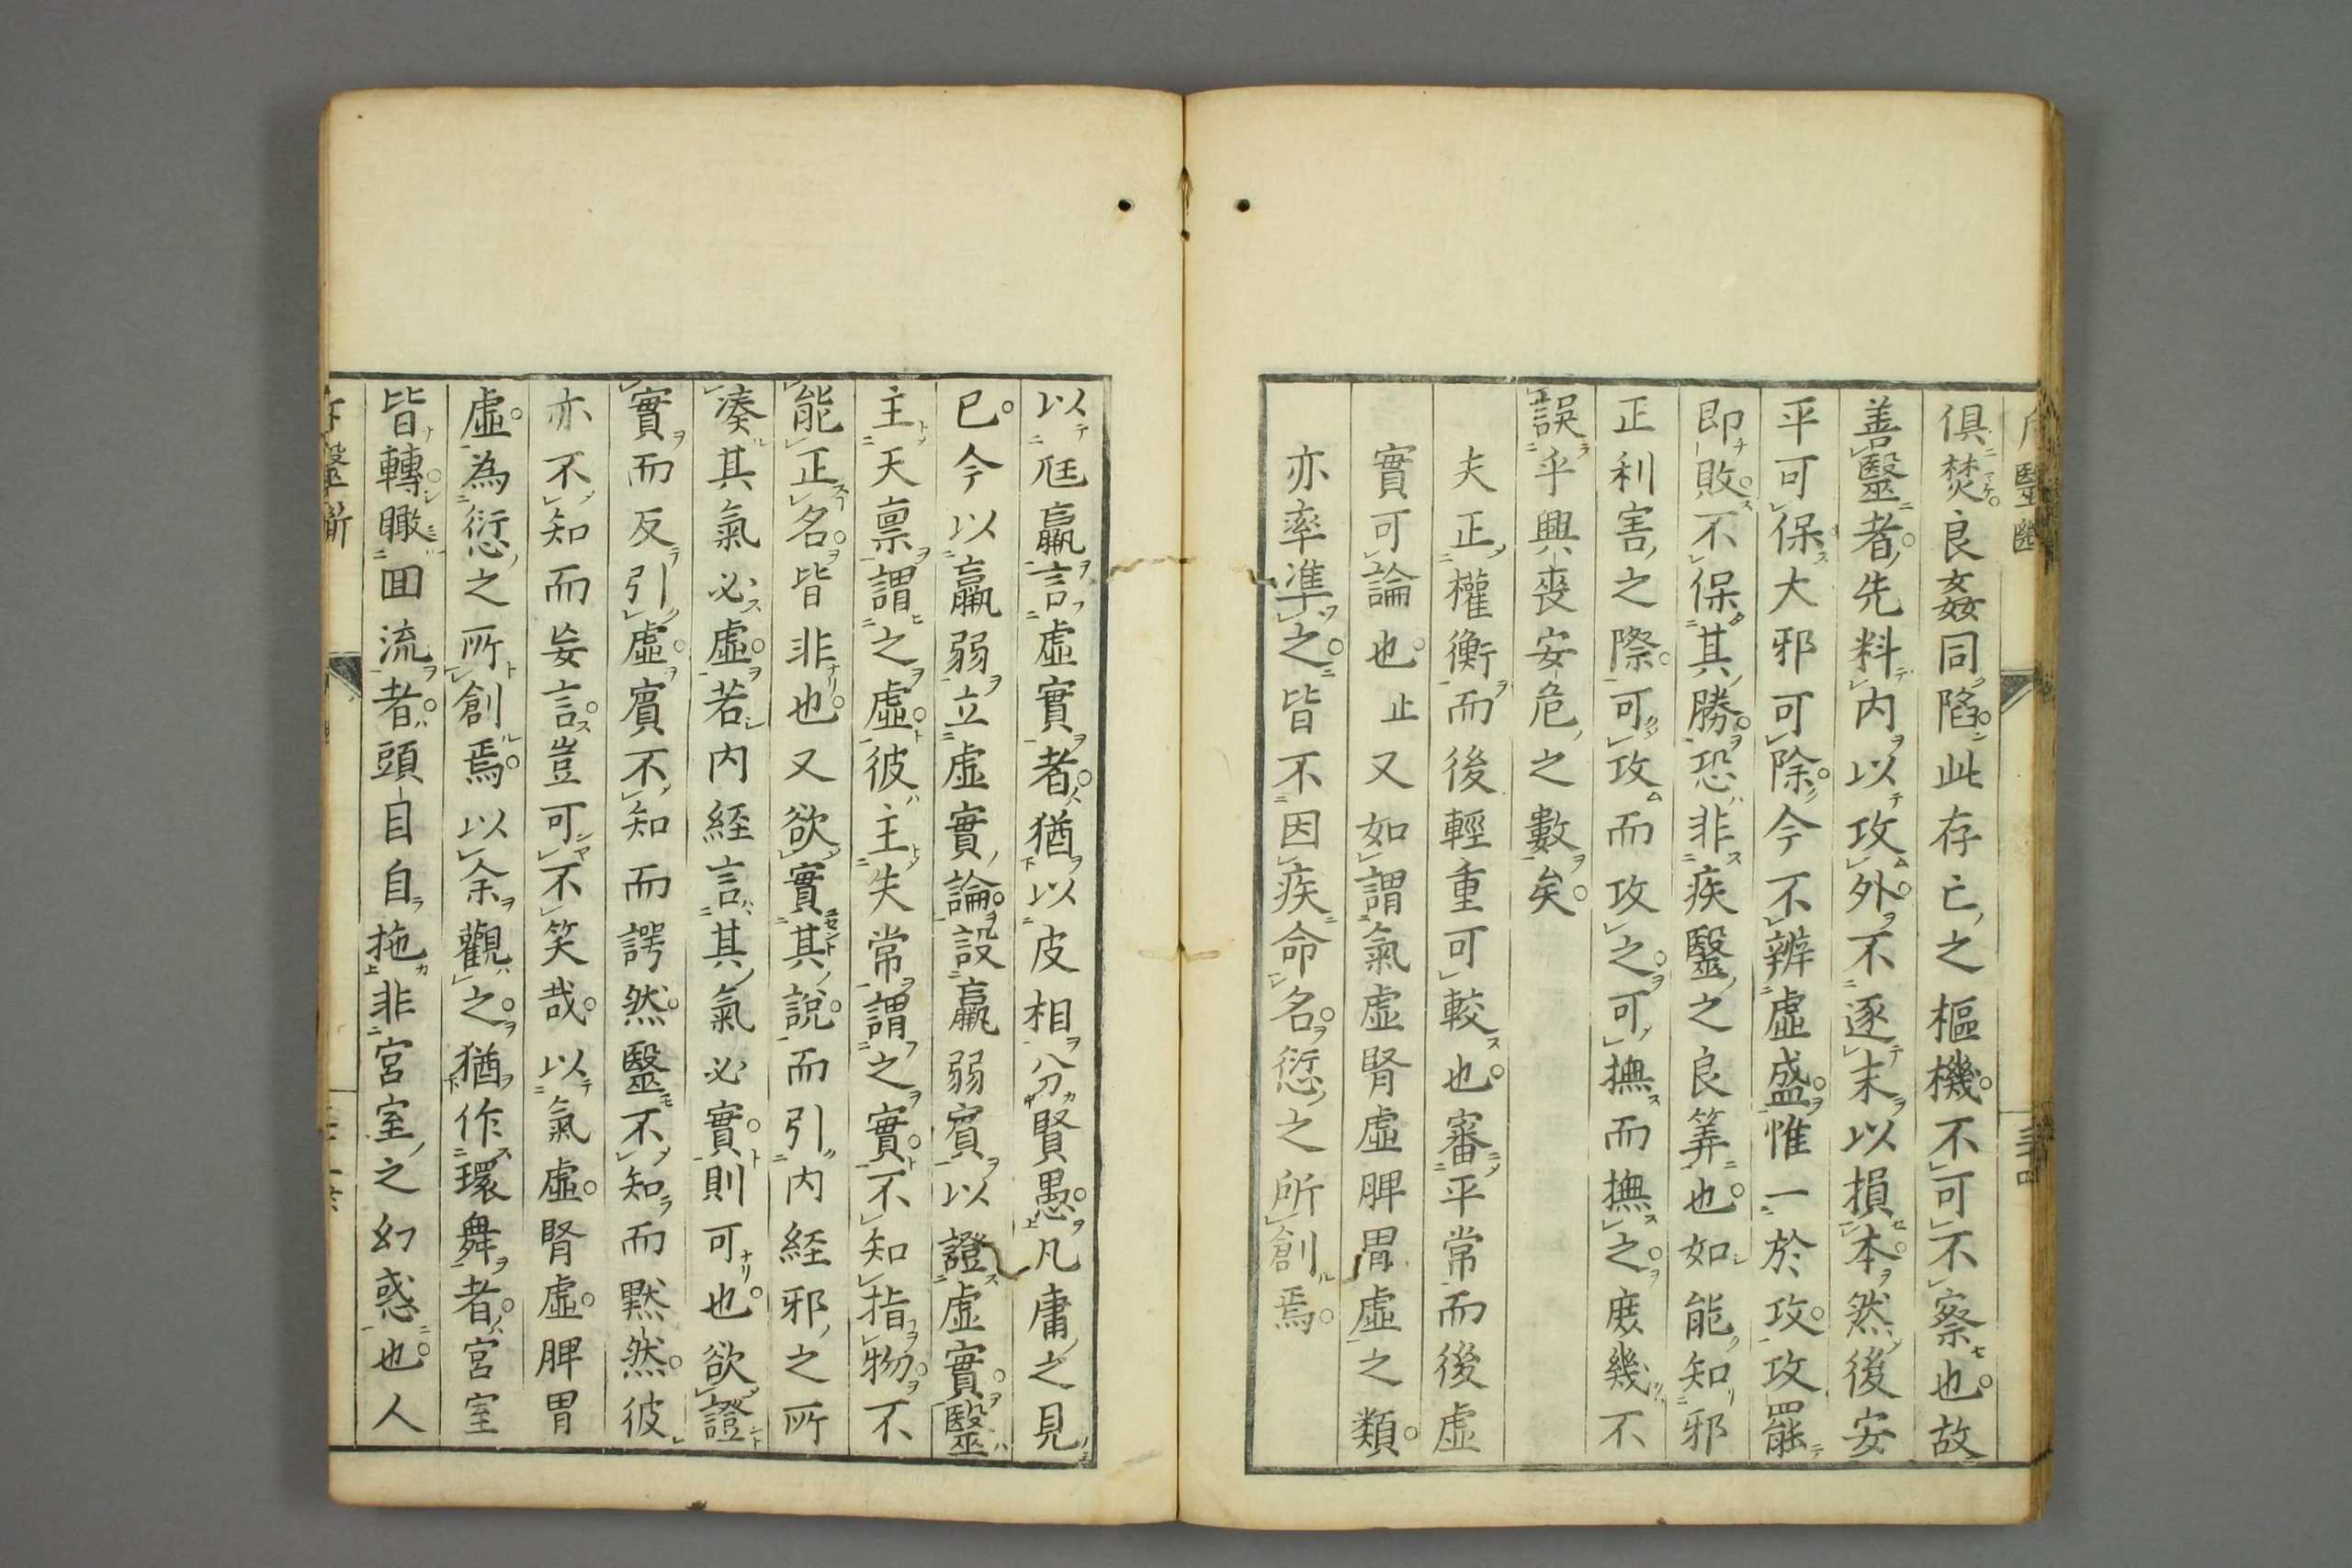 俱焚。良姦同陷。此存亡之樞機。不可不察也。故
善毉者。先料内以攻外。不逐末以損本。然後安
平可保。大邪可除。今不辨虛盛。惟一於攻。攻罷
即敗。不保其勝。恐非疾毉之良筭也。如能知邪
正利害之際。可攻而攻之。可撫而撫之。庶幾不
誤乎興喪安危之數矣。
夫正權衡而後輕重可較也。審平常而後虛
實可論也。止又如謂氣虛腎虛脾胃虛之類。
亦率準之。皆不因疾命名。愆之所創焉。
以尫羸言虛實者。猶以皮相分賢愚。凡庸之見
已。今以羸弱立虛實論。設羸弱賓以證虛實。毉
主天禀謂之虛。彼主失常謂之實。不知指物。不
能正名。皆非也。又欲實其說。而引内経邪之所
湊其氣必虛。若内経言其氣必實。則可也。欲證
實而反引虛。賓不知而諤然。毉不知而默然。彼
亦不知而妄言。豈可不笑哉。以氣虛。腎虛。脾胃
虛。為愆之所創焉。以余觀之。猶作環舞者。宮室
皆轉。瞰囬流者。頭目自拖。非宮室之幻惑也。人